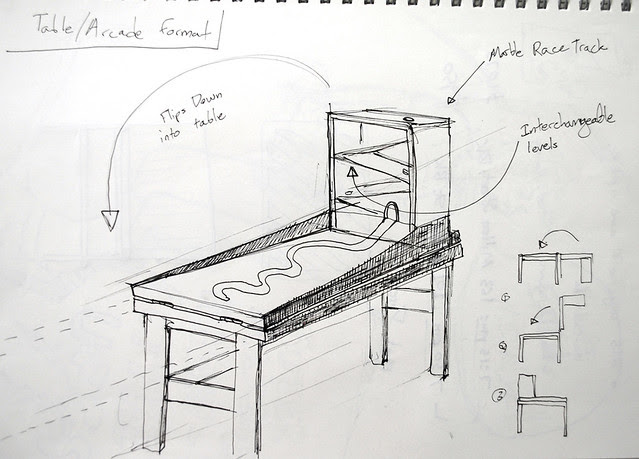 Table/Arcade Format
Flips Down
into table
Marble Race Track
Interchangeable
levels
1
2
3